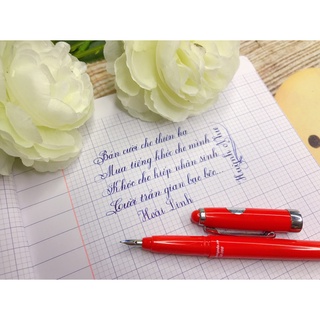 Bán cười cho thiên hạ
Mua tiếng khóc cho mình
Khóc cho kiếp nhân sinh
Cười trần gian bạc bẽo
Hoài Linh